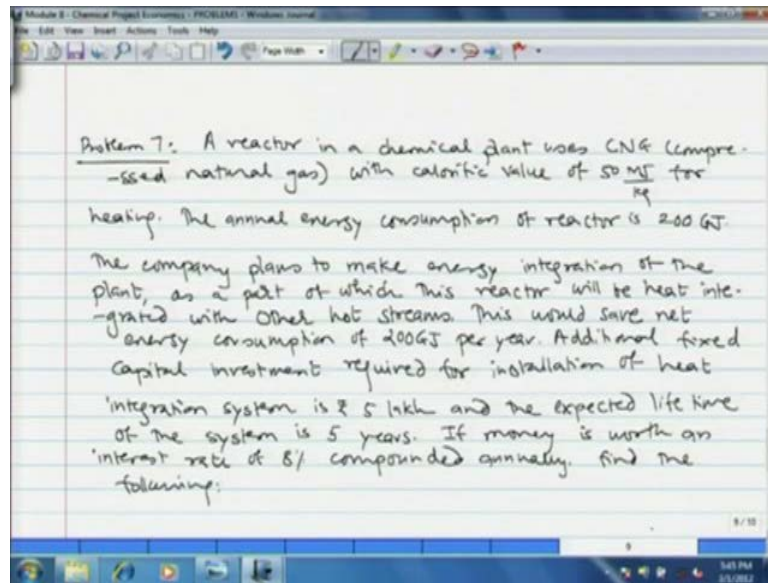 Module 8 - Chemical Project Economics - PROBLEMS - Windows Journal
File Edit View Insert Actions Tools Help
Page Width
Problem 7: A reactor in a chemical plant uses CNG (compre-
-ssed natural gas) with calorific value of 50 MJ/kg for
heating. The annual energy consumption of reactor is 200 GJ.
The company plans to make energy integration of the
plant, as a part of which this reactor will be heat inte-
-grated with other hot streams. This would save net
energy consumption of 200GJ per year. Additional fixed
capital investment required for installation of heat
integration system is ₹ 5 lakh and the expected life time
of the system is 5 years. If money is worth an
interest rate of 8% compounded annually. find the
following:
9 / 10
9
5:45 PM
3/1/2012